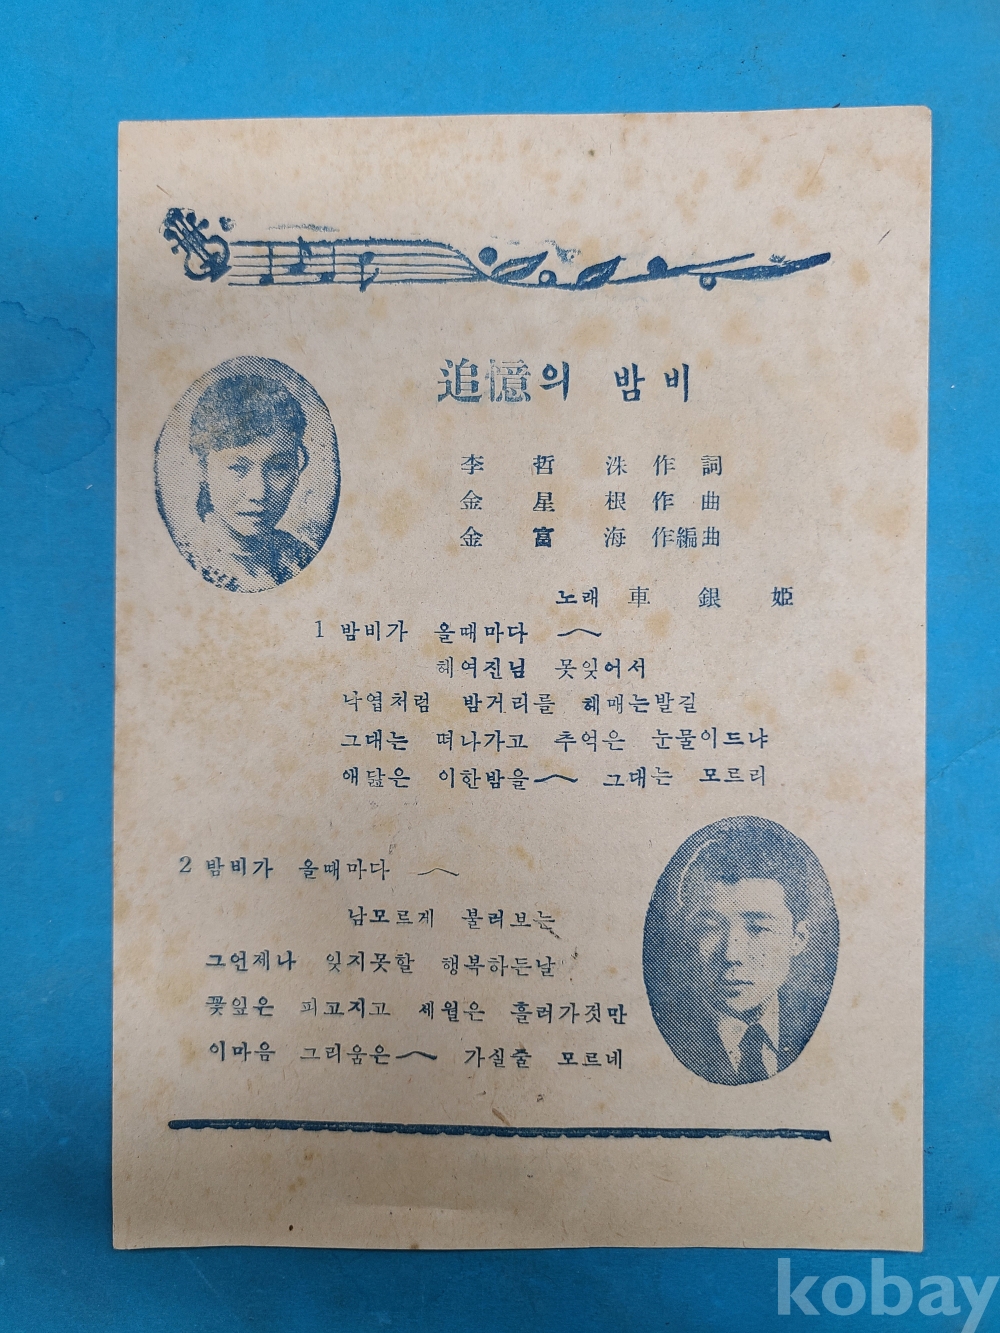 追憶의 밤비
李哲洙作詞
金星根作曲
金富海作編曲
노래 車銀姫
1 밤비가 올때마다 ～
헤여진님 못잊어서
낙엽처럼 밤거리를 헤매는발길
그대는 떠나가고 추억은 눈물이드냐
애닲은 이한밤을～ 그대는 모르리
2 밤비가 올때마다 ～
남모르게 불러보는
그언제나 잊지못할 행복하든날
꽃잎은 피고지고 세월은 흘러가젓만
이마음 그리움은～ 가실줄 모르네
kobay